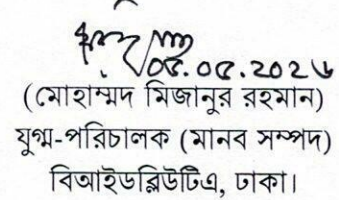 ০৫.০৫.২০২৬
(মোহাম্মদ মিজানুর রহমান)
যুগ্ম-পরিচালক (মানব সম্পদ)
বিআইডব্লিউটিএ, ঢাকা।